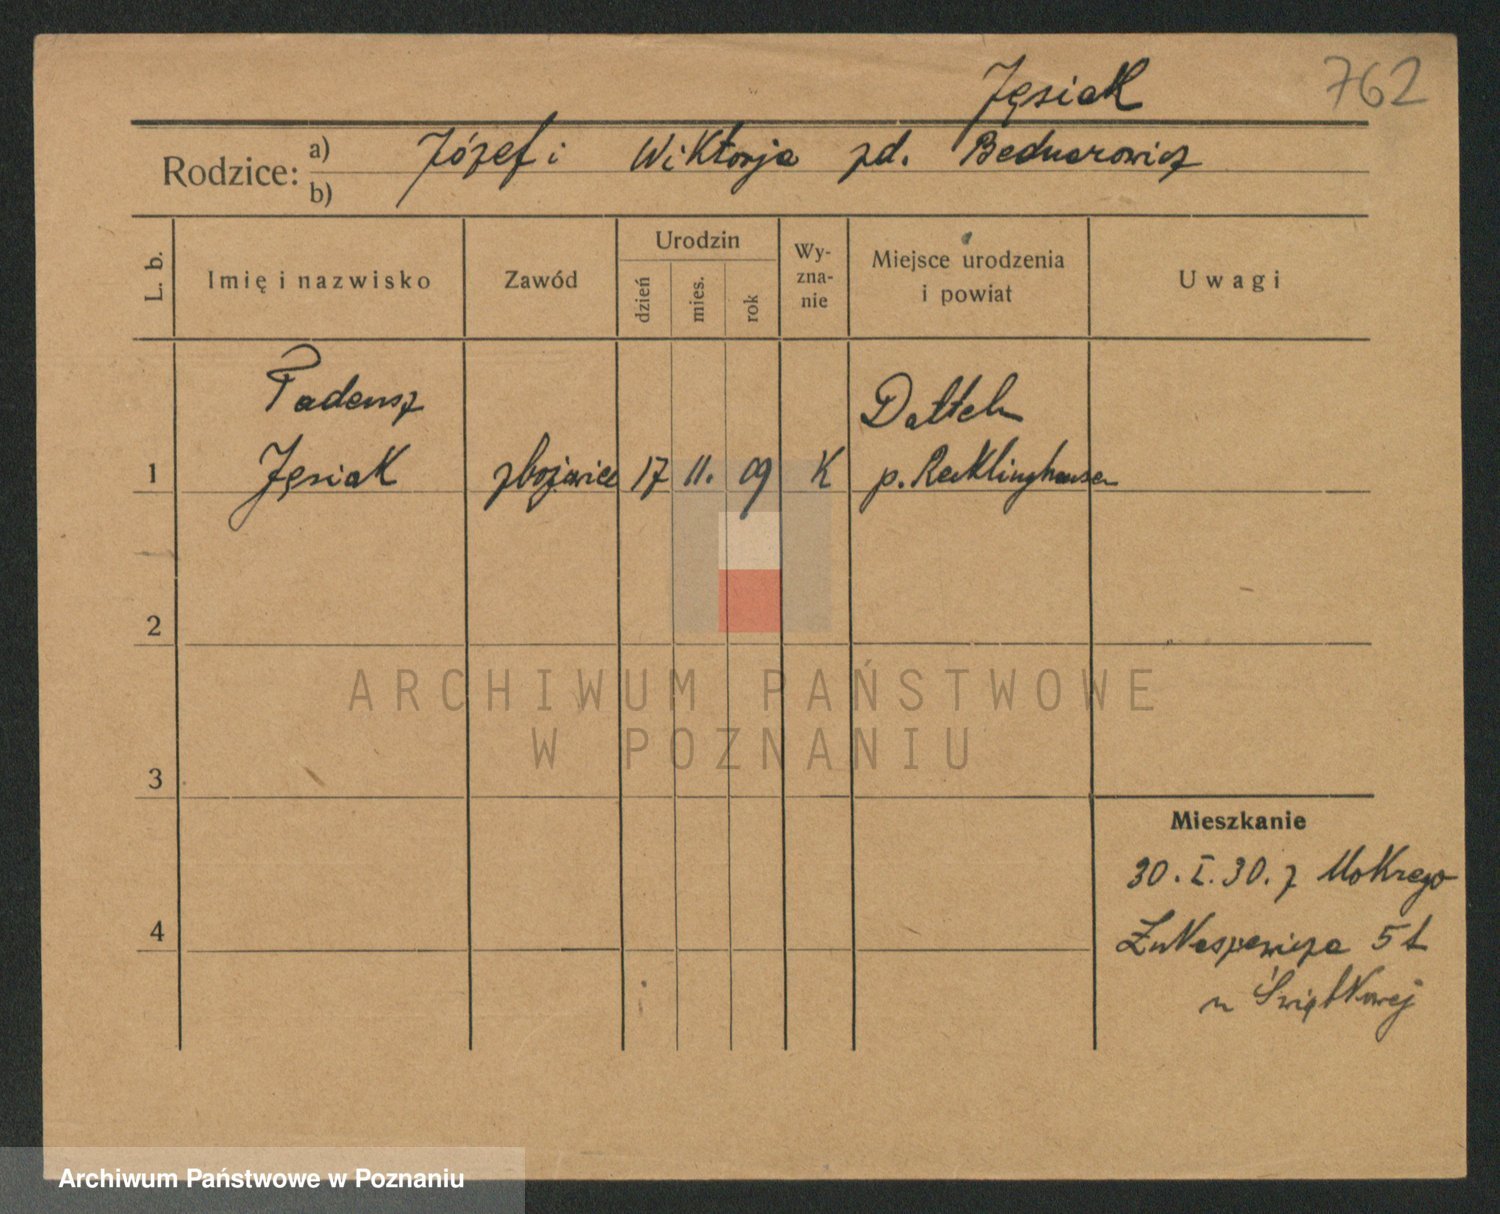 Jęsiak 762
Rodzice: a) Józef i Wiktorja zd. Bednarowicz
b)
L. b.
Imię i nazwisko
Zawód
Urodzin
dzień
mies.
rok
Wy-
zna-
nie
Miejsce urodzenia
i powiat
Uwagi
Tadeusz
Datteln
1 Jęsiak 17 11. 09 K p. Recklinghausen
2
ARCHIWUM PAŃSTWOWE
W POZNANIU
3
Mieszkanie
30. I. 30. z Mokrego
4 Łukaszewicza 5
u Świętkowej
Archiwum Państwowe w Poznaniu